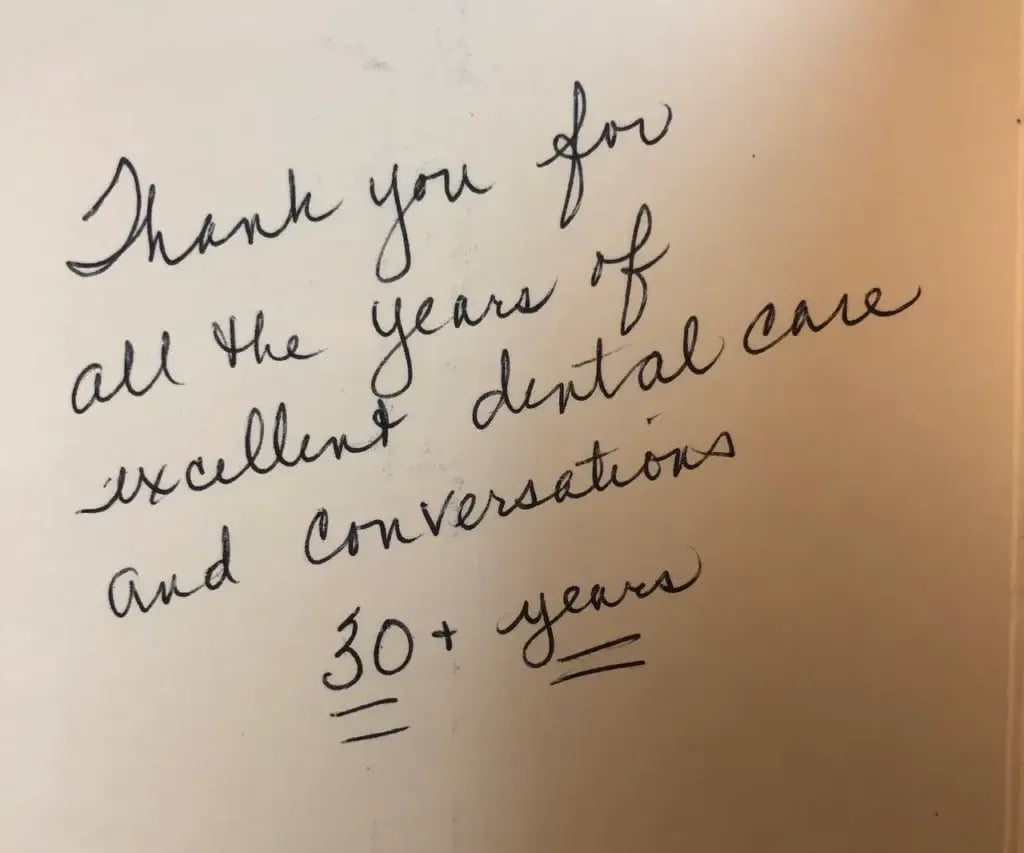 Thank you for
all the years of
excellent dental care
and conversations
30+ years